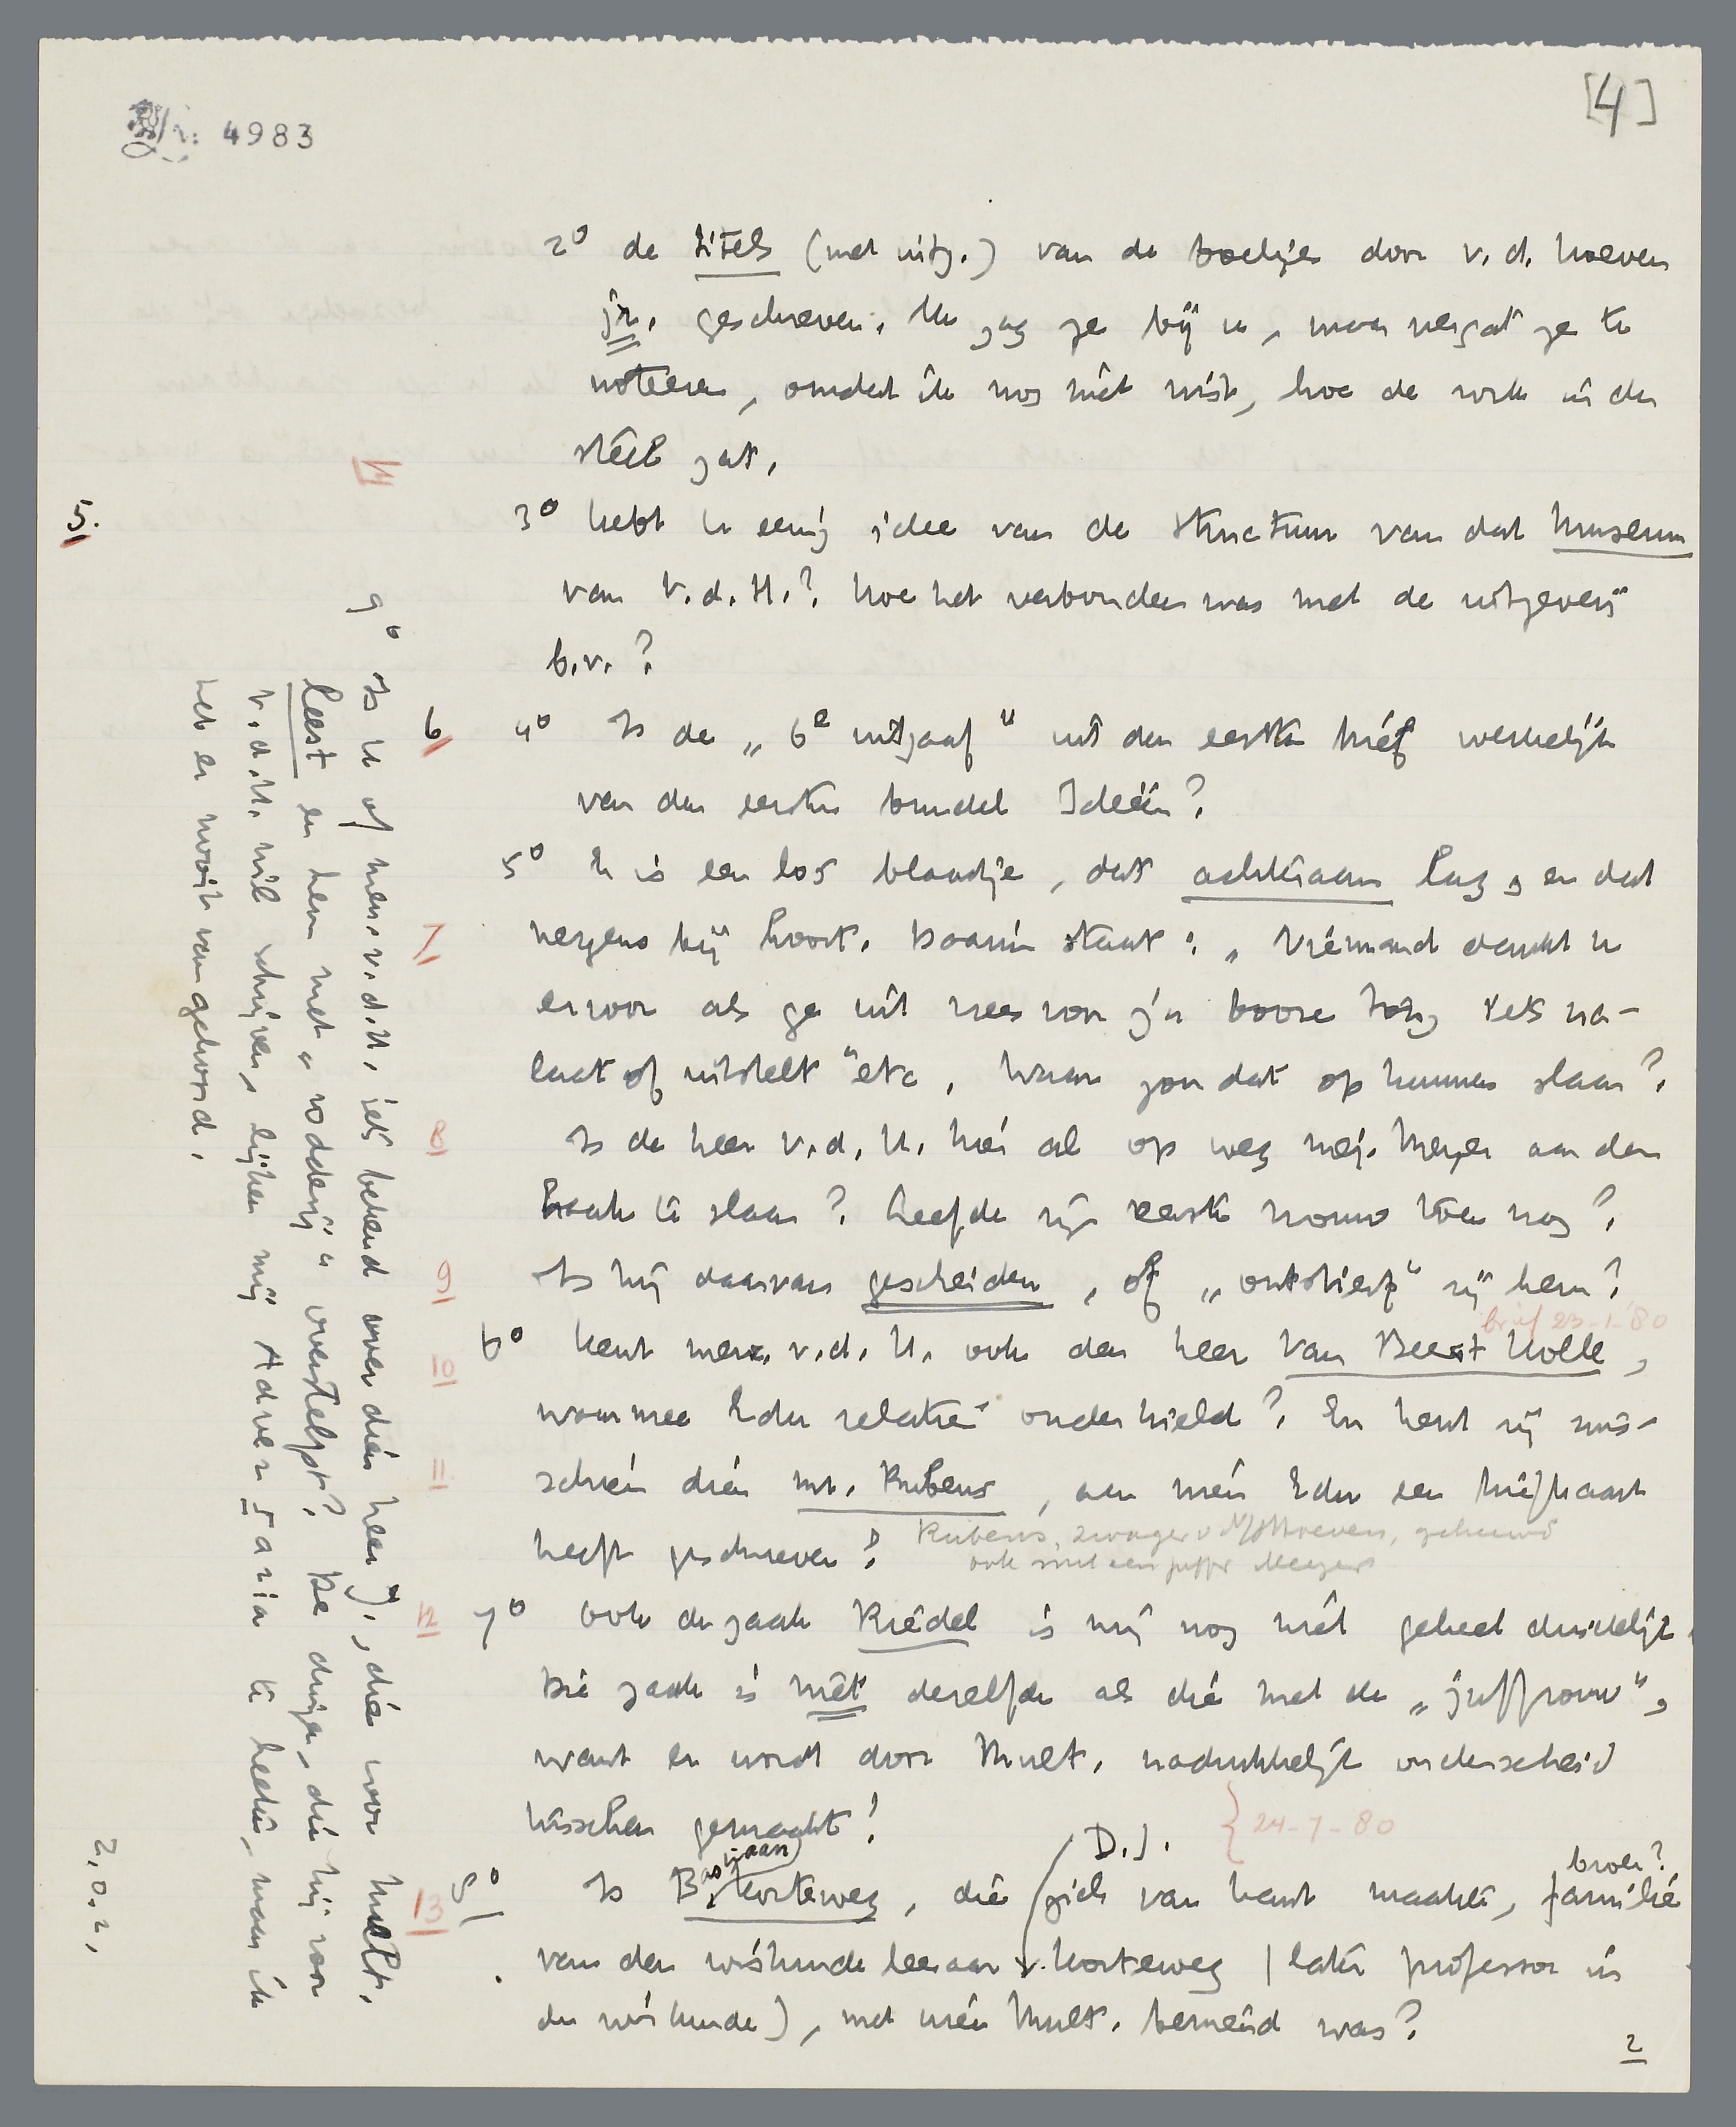 [4]
4983
2° de titels (met uitg.) van de boekjes door v. d. Hoeven
jr. geschreven. Ik zag ze bij u, maar vergat ze te
noteeren, omdat ik nog niet wist, hoe de vork in den
steel zat.
4
5.
3° hebt u eenig idee van de structuur van dat Museum
van V.d.H.? Hoe het verbonden was met de uitgeverij
b.v.?
6 4° Is de „6e uitgaaf" uit den eersten brief werkelijk
van den eersten bundel Ideën?
5° Er is een los blaadje, dat achteraan lag, en dat
7 nergens bij hoort. Daarin staat: „Niemand dankt u
ervoor als ge uit vrees voor z'n booze tong iets na-
laat of uitstelt" etc. Waar zou dat op kunnen slaan?
8 Is de heer v.d.H. hier al op weg mej. Meyer aan den
haak te slaan? Leefde zijn eerste vrouw toen nog?
9 Is hij daarvan gescheiden, of „ontstierf" zij hem?
brief 23-1-'80
10 6° Kent mevr. v.d.H. ook den heer Van Beest Holle,
waarmee Edu relaties onderhield? En kent zij mis-
11 schien dien mr. Rubens, aan wien Edu een briefkaart
heeft geschreven?
Rubens, zwager v d Hoeven, gehuwd
ook met een juffr Meyer
12 7° Ook de zaak Riedel is mij nog niet geheel duidelijk.
Die zaak is niet dezelfde als die met de „juffrouw",
want er wordt door Mult. nadrukkelijk onderscheid
tusschen gemaakt!
24-7-80
13 8° Is Bastiaan Korteweg, die zich van kant maakte, familie
broer?
D.J.
van den wiskunde leeraar Korteweg (later professor in
de wiskunde), met wien Mult. bevriend was?
2
9° Is u of mevr. v.d.H. iets bekend over dien heer J., die voor Mult.
leest en hem met „vodderij" overstelpt? De dingen, die hij voor
v.d.H. wil schrijven, lijken mij Adversaria te heeten, maar ik
heb er nooit van gehoord.
z.o.z.